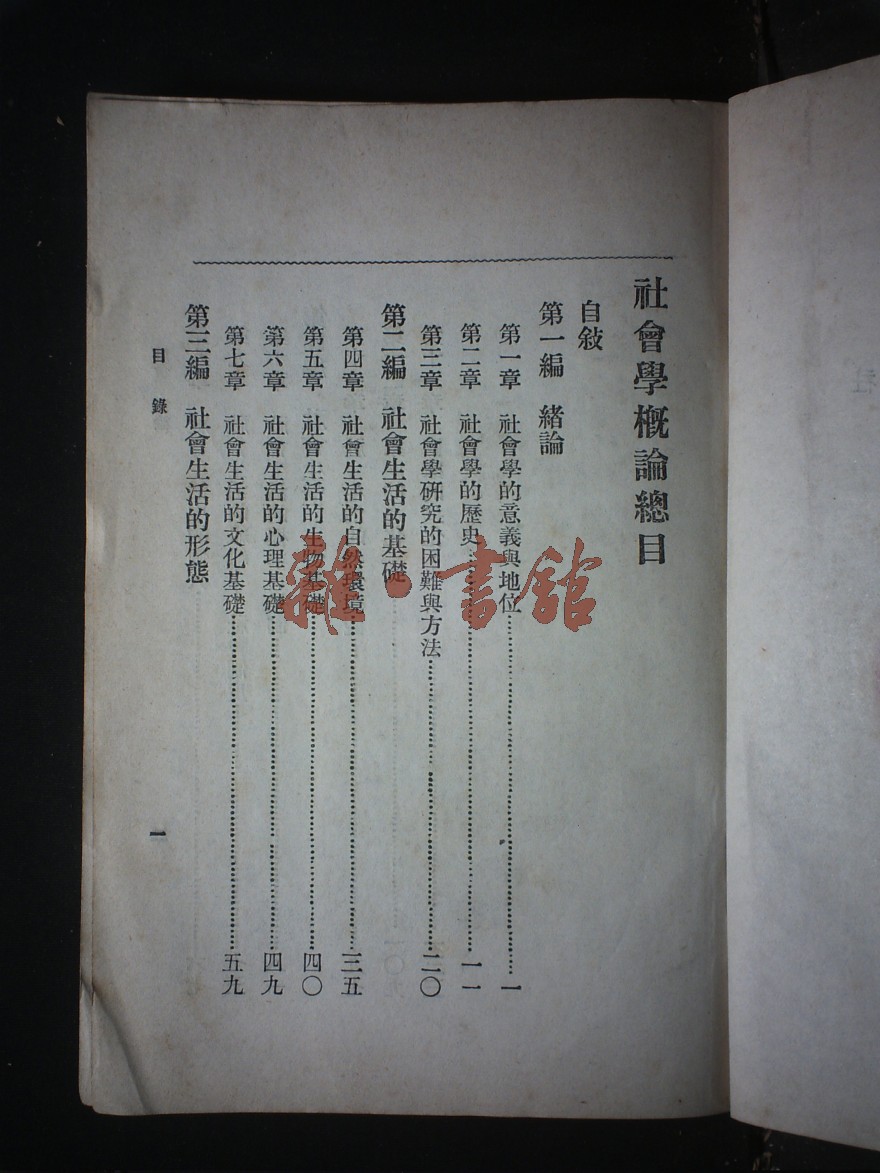 社會學概論總目
自敍
第一編　緒論
第一章　社會學的意義與地位……一
第二章　社會學的歷史……一一
第三章　社會學研究的困難與方法……二〇
第二編　社會生活的基礎
第四章　社會生活的自然環境……三五
第五章　社會生活的生物基礎……四〇
第六章　社會生活的心理基礎……四九
第七章　社會生活的文化基礎……五九
第三編　社會生活的形態
目錄
一
雜·書館